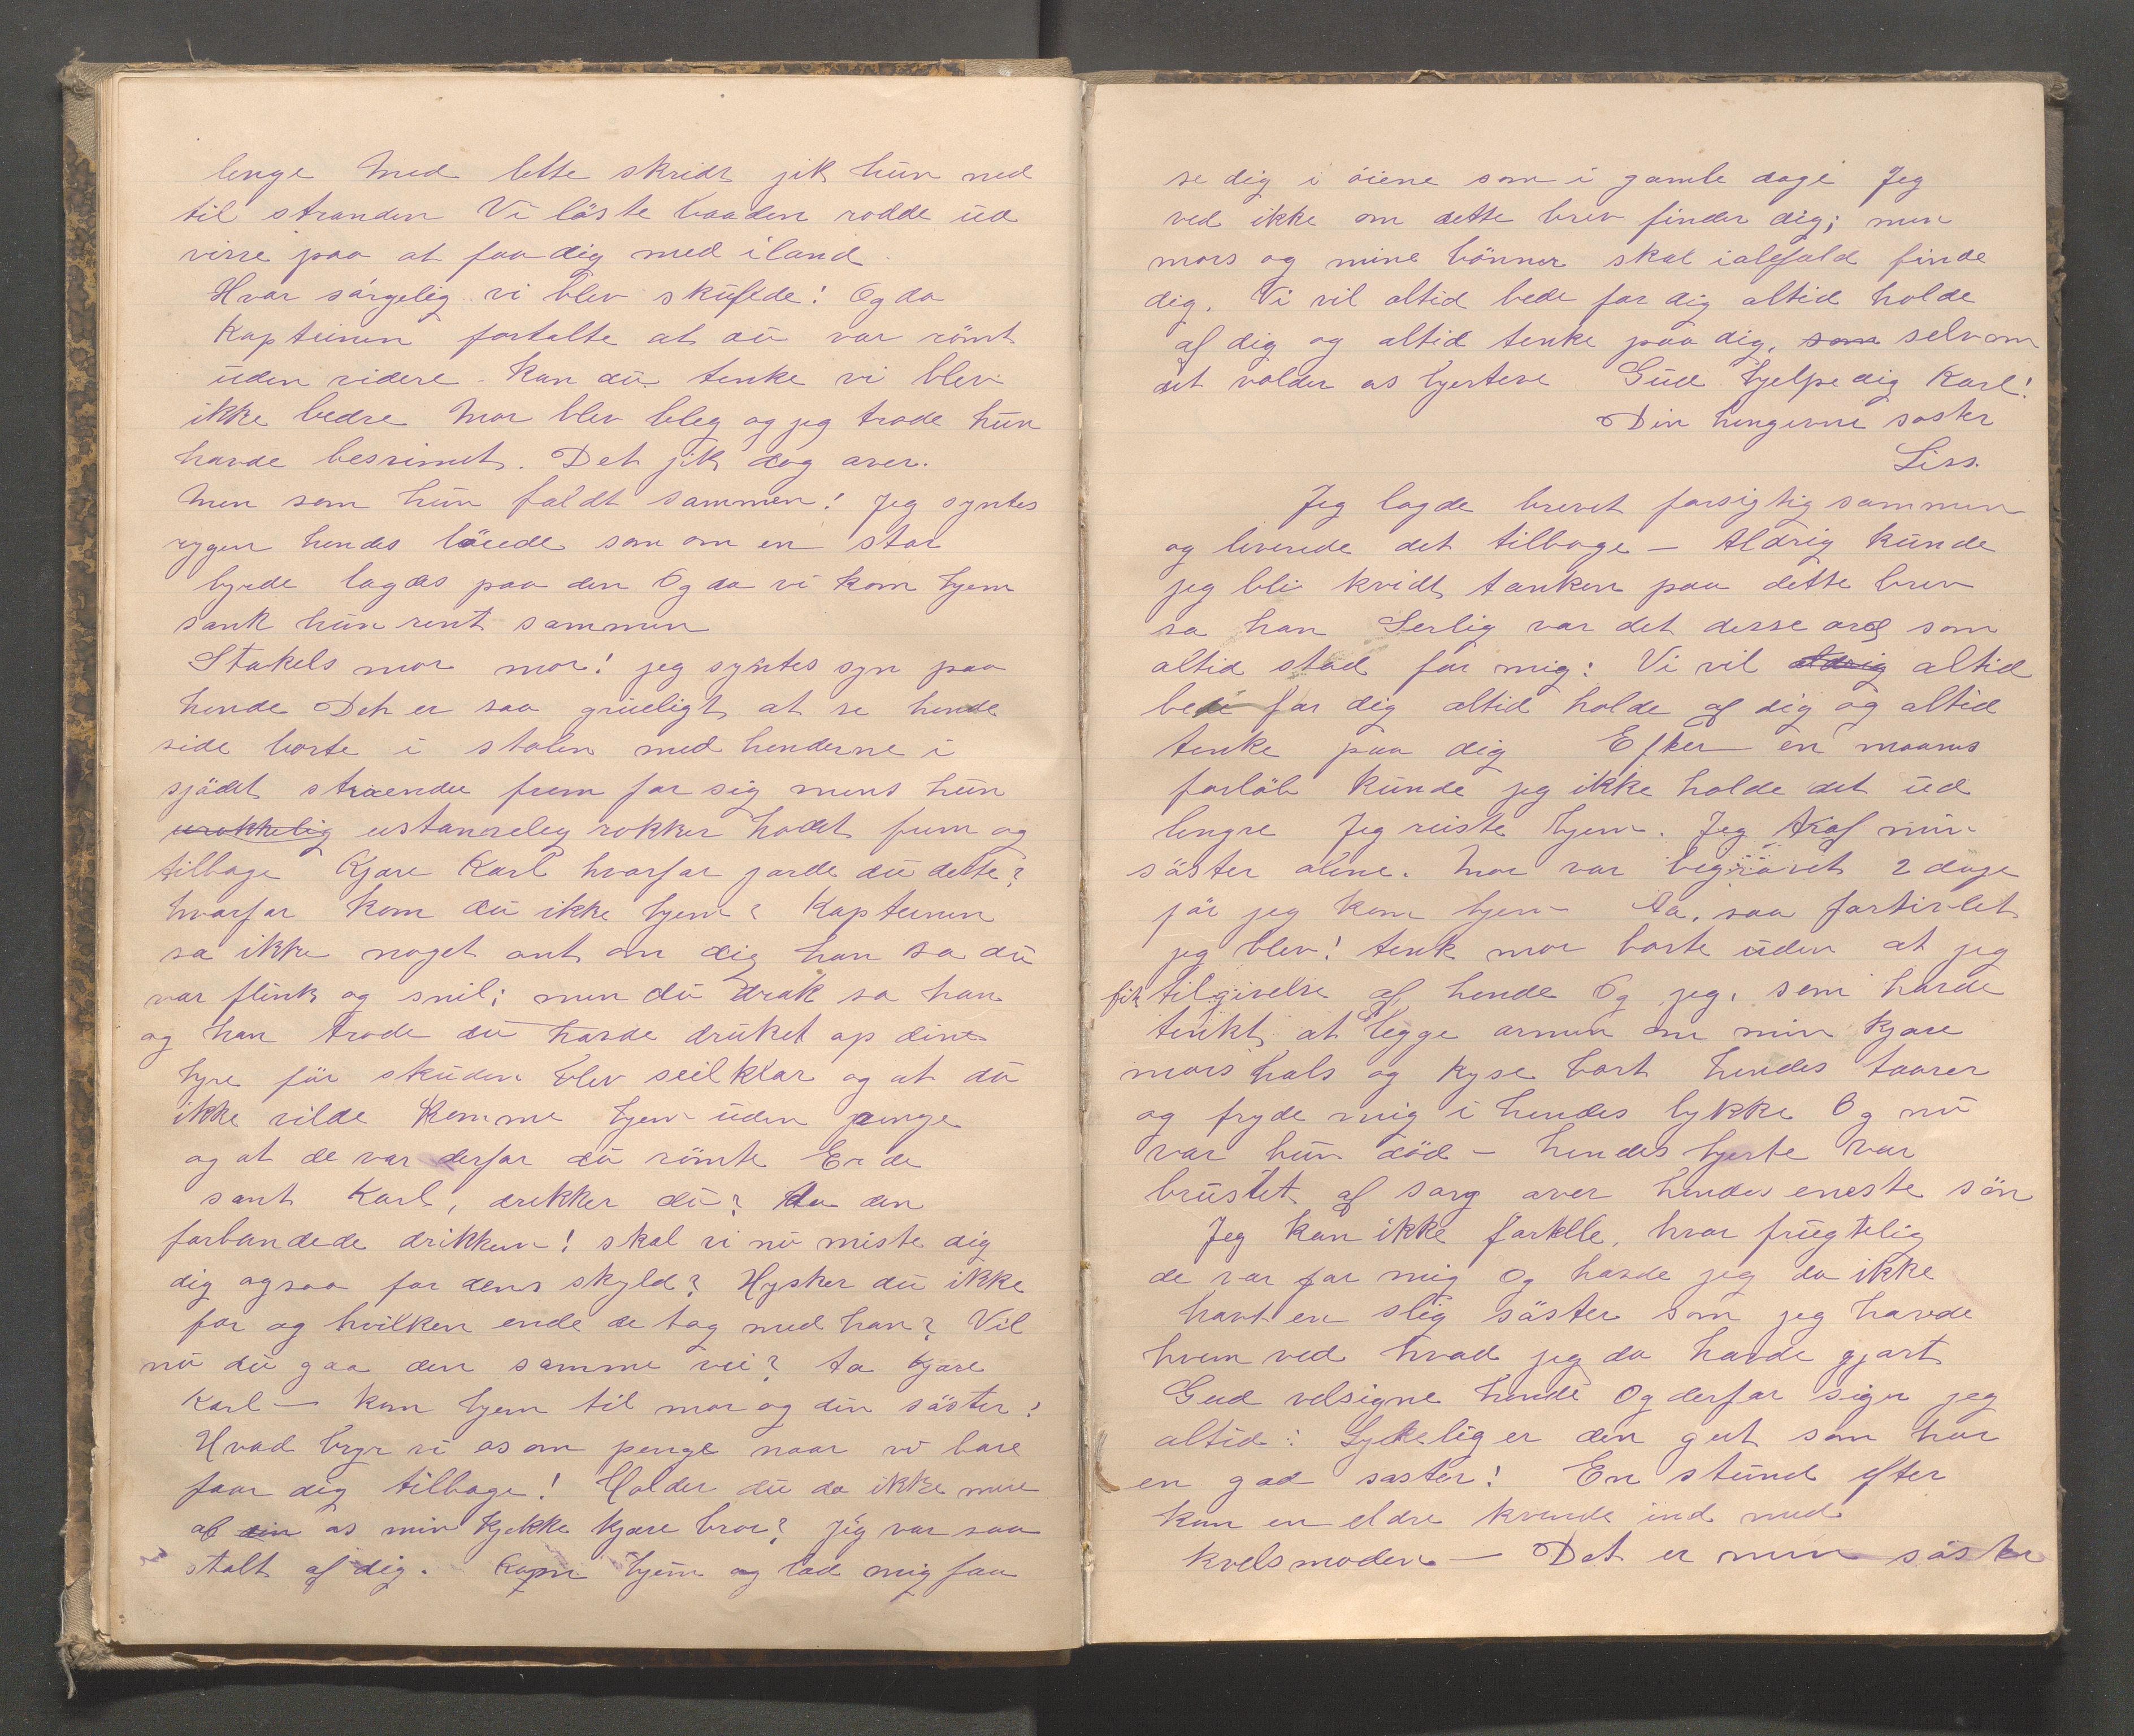 lenge Med lette skridt jik hun ned
til stranden Vi löste baaden rodde ud
visse paa at faa dig med iland.
Hvor sörgelig vi blev skuffede! Og da
Kapteinen fortalte at du var römt
uden videre. Kan du tenke vi blev
ikke bedre Mor blev bleg og jeg trode hun
havde besvimet. Det jik dog over.
Men som hun faldt sammen! Jeg syntes
rygen hendes böiede som om en stor
byrde lagdes paa den Og da vi kom hjem
sank hun rent sammen
Stakels mor mor! jeg syntes syn paa
hende Det er saa grueligt at se hende
side borte i stolen med henderne i
sjödet stirrende frem for sig mens hun
urokkelig ustanselig rokker hodet frem og
tilbage Kjære Karl hvorfor jorde du dette?
hvorfor kom du ikke hjem? Kapteinen
sa ikke noget ont om dig han sa du
var flink og snil; men du drak sa han
og han trode du havde druket op dine
hyre för skuden blev seilklar og at du
ikke vilde komme hjem uden penge
og at de var derfor du römte Er de
sant Karl, drikker du? Aa den
forbandede drikken! skal vi nu miste dig
dig ogsaa for dens skyld? Hysker du ikke
far og hvilken ende de tog med han? Vil
nu du gaa den samme vei? Aa kjære
Karl — kom hjem til mor og din söster!
Hvad bryr vi os om penge naar vi bare
faar dig tilbage! Holder du da ikke mere
af din os min kjekke kjære bror? Jeg var saa
stolt af dig. Kom hjem og lad mig faa
se dig i öiene som i gamle dage Jeg
ved ikke om dette brev finder dig; men
mors og mine bönner skal ialfald finde
dig. Vi vil altid bede for dig altid holde
af dig og altid tenke paa dig, som selvom
det volder os hjerteve Gud hjelpe dig Karl!
Din hengivne soster
Liss.
Jeg lagde brevet forsigtig sammen
og leverede det tilbage — Aldrig kunde
jeg bli kvidt tanken paa dette brev
sa han Serlig var det desse ord som
altid stod for mig: Vi vil aldrig altid
bede for dig altid holde af dig og altid
tenke paa dig Efter en maaneds
forlöb kunde jeg ikke holde det ud
lengre Jeg reiste hjem. Jeg traf min
söster alene. Mor var begravet 2 dage
för jeg kom hjem Aa, saa fortvilet
jeg blev! tenk mor borte uden at jeg
fik tilgivelse af hende Og jeg, som havde
tenkt at legge armen om min kjære
mors hals og kyse bort hendes taarer
og fryde mig i hendes lykke Og nu
var hun död — hendes hjerte var
brustet af sorg over hendes eneste sön
Jeg kan ikke fortelle, hvor frugtelig
de var for mig Og havde jeg da ikke
havt en slig söster som jeg havde
hvem ved hvad jeg da havde gjort
Gud velsigne hende Og derfor siger jeg
altid: Lykelig er den gut som har
en god soster! En stund efter
kom en eldre kvinde ind med
kvelsmaden — Det er min söster